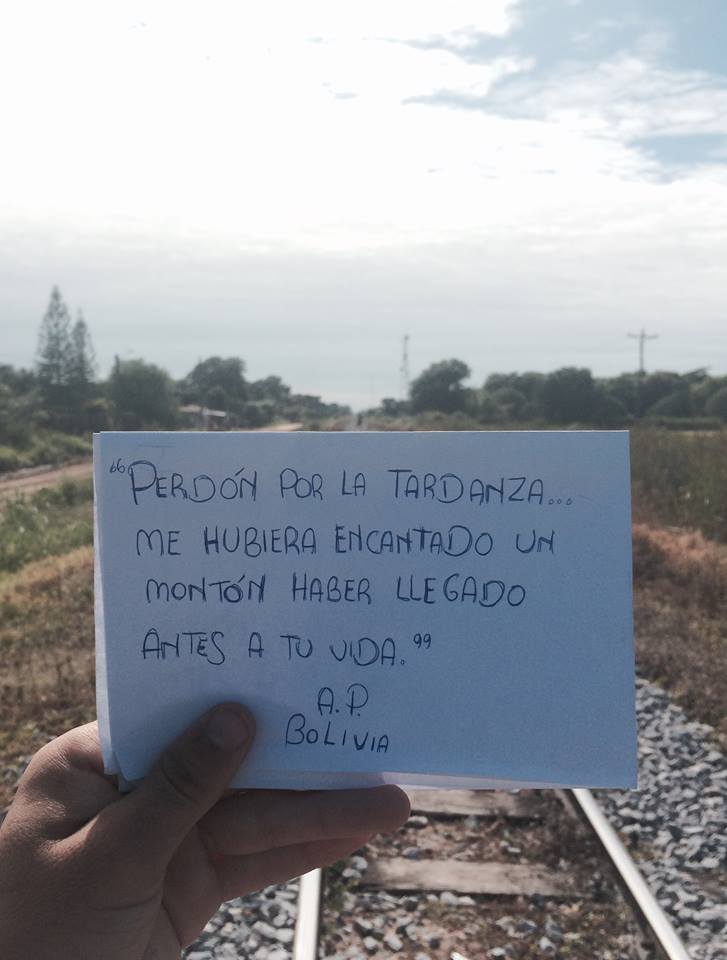 “PERDÓN POR LA TARDANZA...
ME HUBIERA ENCANTADO UN
MONTÓN HABER LLEGADO
ANTES A TU VIDA.”
A.P.
BOLIVIA